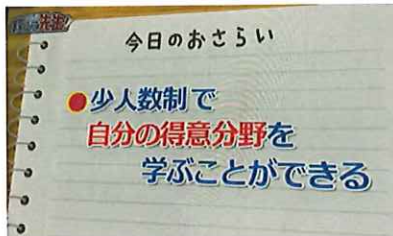 今日のおさらい
●少人数制で
自分の得意分野を
学ぶことができる